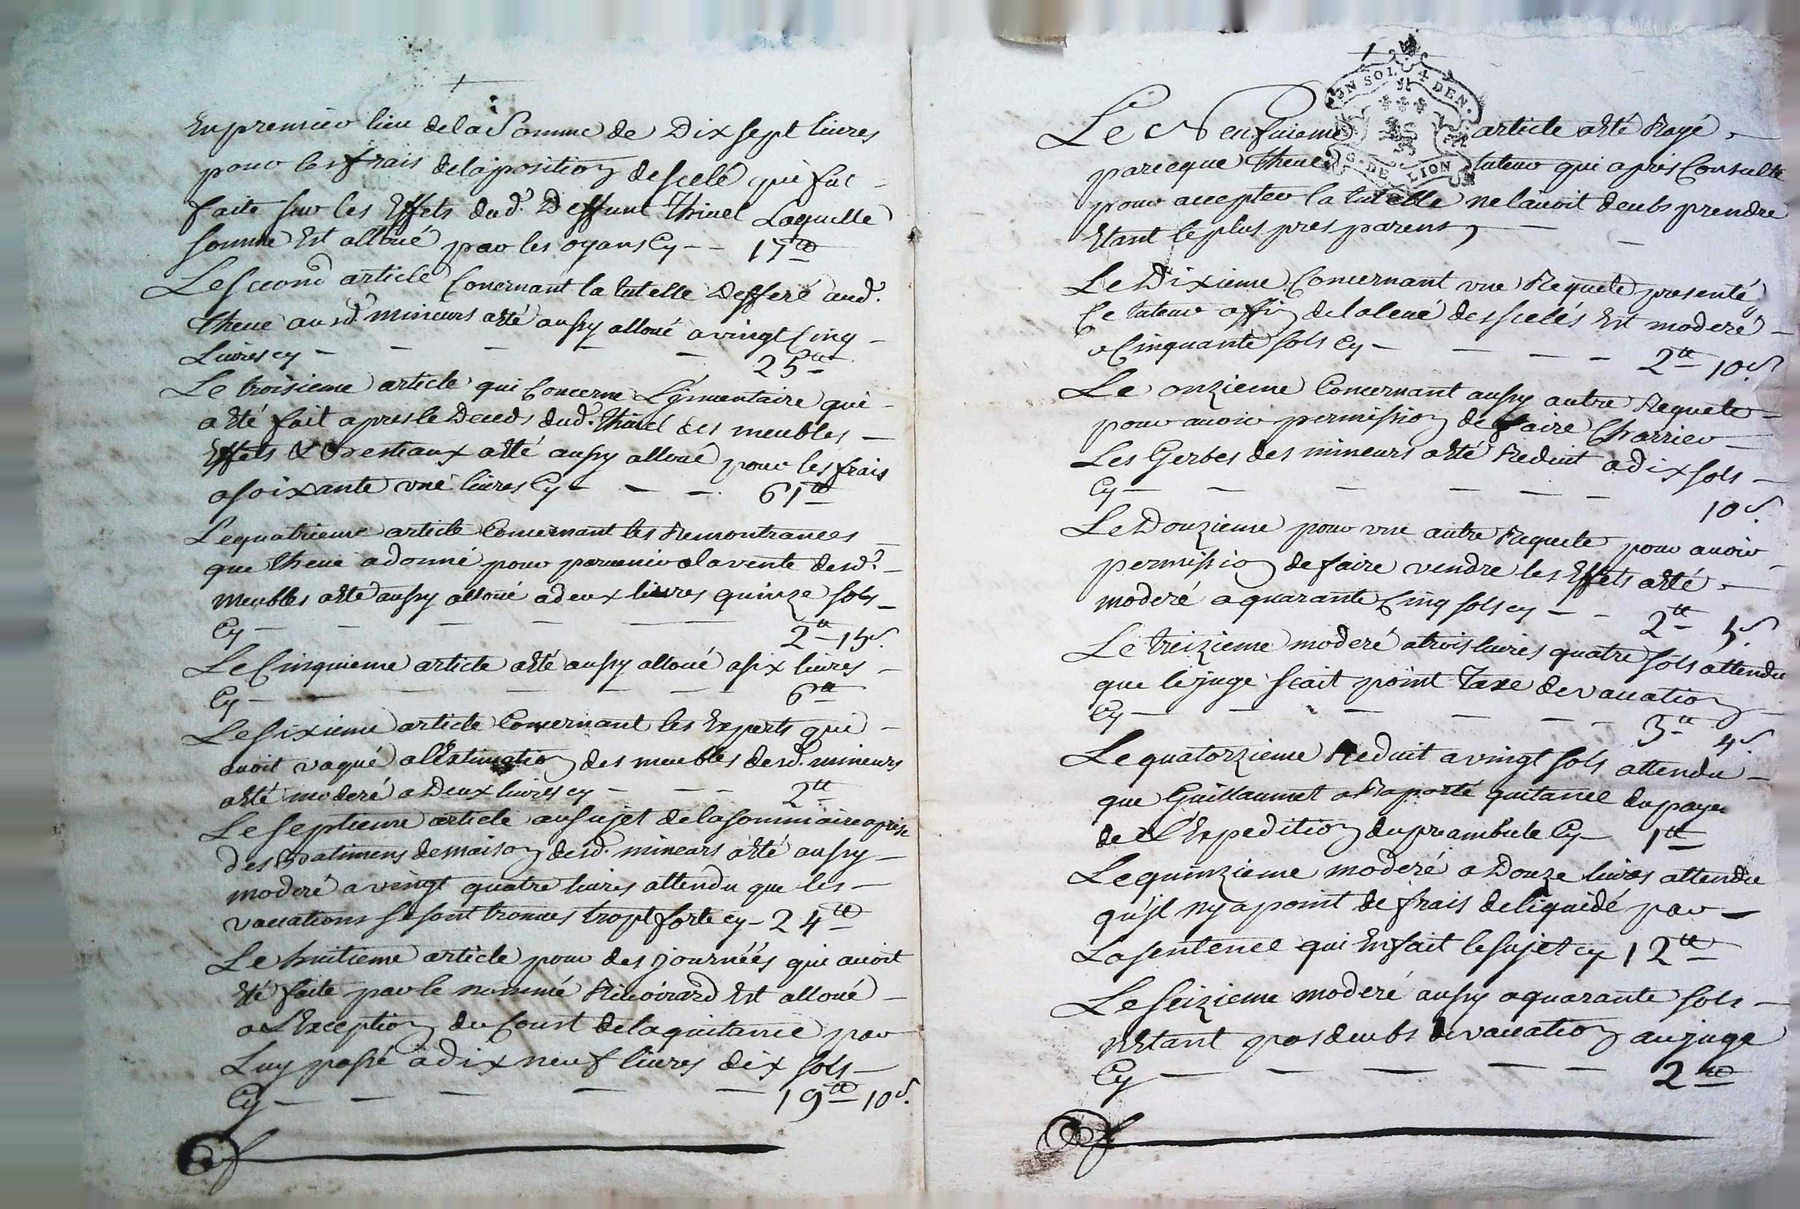 En premier lieu de la Somme de Dix sept livres
pour les frais de laposition de scelé qui fut
faite sur les Effets dud. Deffunt Thinel Laquelle
somme Est alloué par les oyans Cy - - 17tt
Le second article Concernant la tutelle Defferé aud.
theue ausd. mineurs aeté aussy alloué a vingt Cinq
Livres cy - - - - - 25tt
Le troisieme article qui Concerne L'inventaire qui
a Eté fait apres le Deceds dud. Thinel des meubles
Effets & Bestiaux aeté aussy alloué pour les frais
a soixante une livres Cy - - - 61tt
Le quatrieme article Concernant les Remontrances
que theue a donné pour parvenir a la vente desd.
meubles aeté aussy alloué a deux livres quinze sols
Cy - - - - - 2tt 15s.
Le Cinquieme article aeté aussy alloué a six livres
Cy - - - - - 6tt
Le sixieme article Concernant les Experts qui
avoit vaqué a l'Estimation des meubles desd. mineurs
aeté moderé a Deux livres cy - - - 2tt
Le septieme article au sujet de la sommaire aprise
des Batimens de maison desd. mineurs aeté aussy
moderé a vingt quatre livres attendu que les
vacations se sont trouvés tropt forte cy - 24tt
Le huitieme article pour des journéés qui avoit
Eté faite par le nommé est alloué
a L'Exception du Coust de la quitance par
Luy passé à dix neuf livres dix sols
Cy - - - - - 19tt 10s.
Le Neufuieme article aeté Rayé
parceque theue tuteur qui apres Consulte
pour accepter la tutelle ne lavoit deubs prendre
Etant le plus pres parens,
Le Dixieme Concernant une Requete presenté
Ce tuteur affin de la levé des scelés Est moderé
a Cinquante sols Cy - - - - 2tt 10s.
Le onzieme Concernant aussy autre Requete
pour avoir permission de faire Charrier
Les Gerbes des mineurs aeté Reduit a dix sols
Cy - - - - - - 10s.
Le Douzieme pour une autre Requete pour avoir
permission de faire vendre les Effets aeté
moderé a quarante Cinq sols cy - - 2tt 5s.
Le treizieme moderé a trois livres quatre sols attendu
que le juge scait point Taxe de vacation
Cy - - - - - - 3tt 4s.
Le quatorzieme Reduit a vingt sols attendu
que Guillaumet a Raporté quitance du payer
de L'Expedition du preambule Cy - 1tt
Le quinzieme moderé a Douze livres attendu
qu'il ny a point de frais de liquidé par
La sentence qui En fait le sujet cy 12tt
Le seizieme moderé aussy a quarante sols
n'Etant pas deubs de vacation au juge
Cy - - - - - 2tt
ON SOL 4 DEN.
G. DE LION